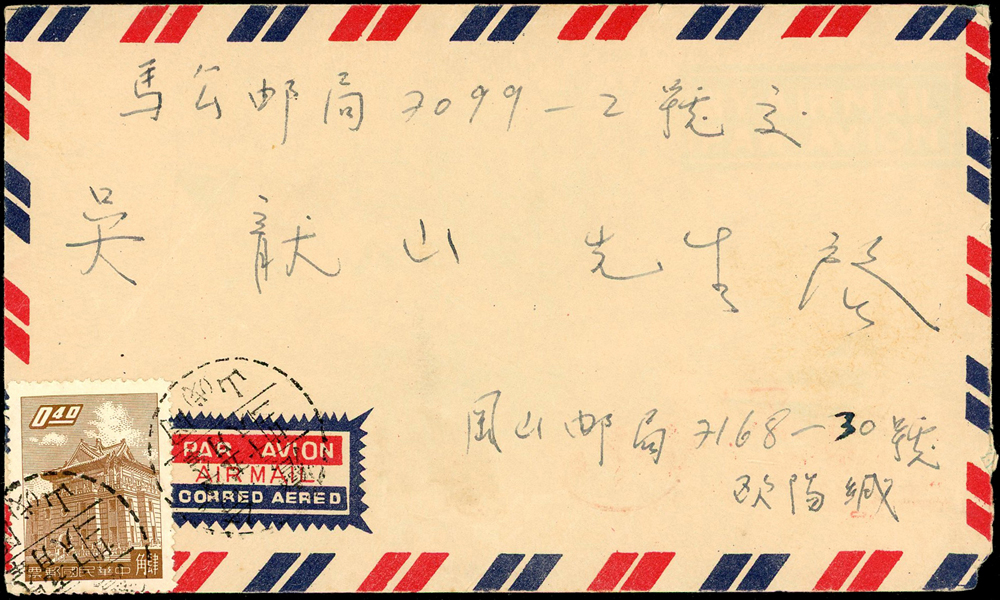 馬公邮局7099-2號交
吳献山先生啟
岡山邮局7168-30號
欧陽
0.40
PAR AVION
AIR MAIL
CORREO AEREO
票郵國民華中